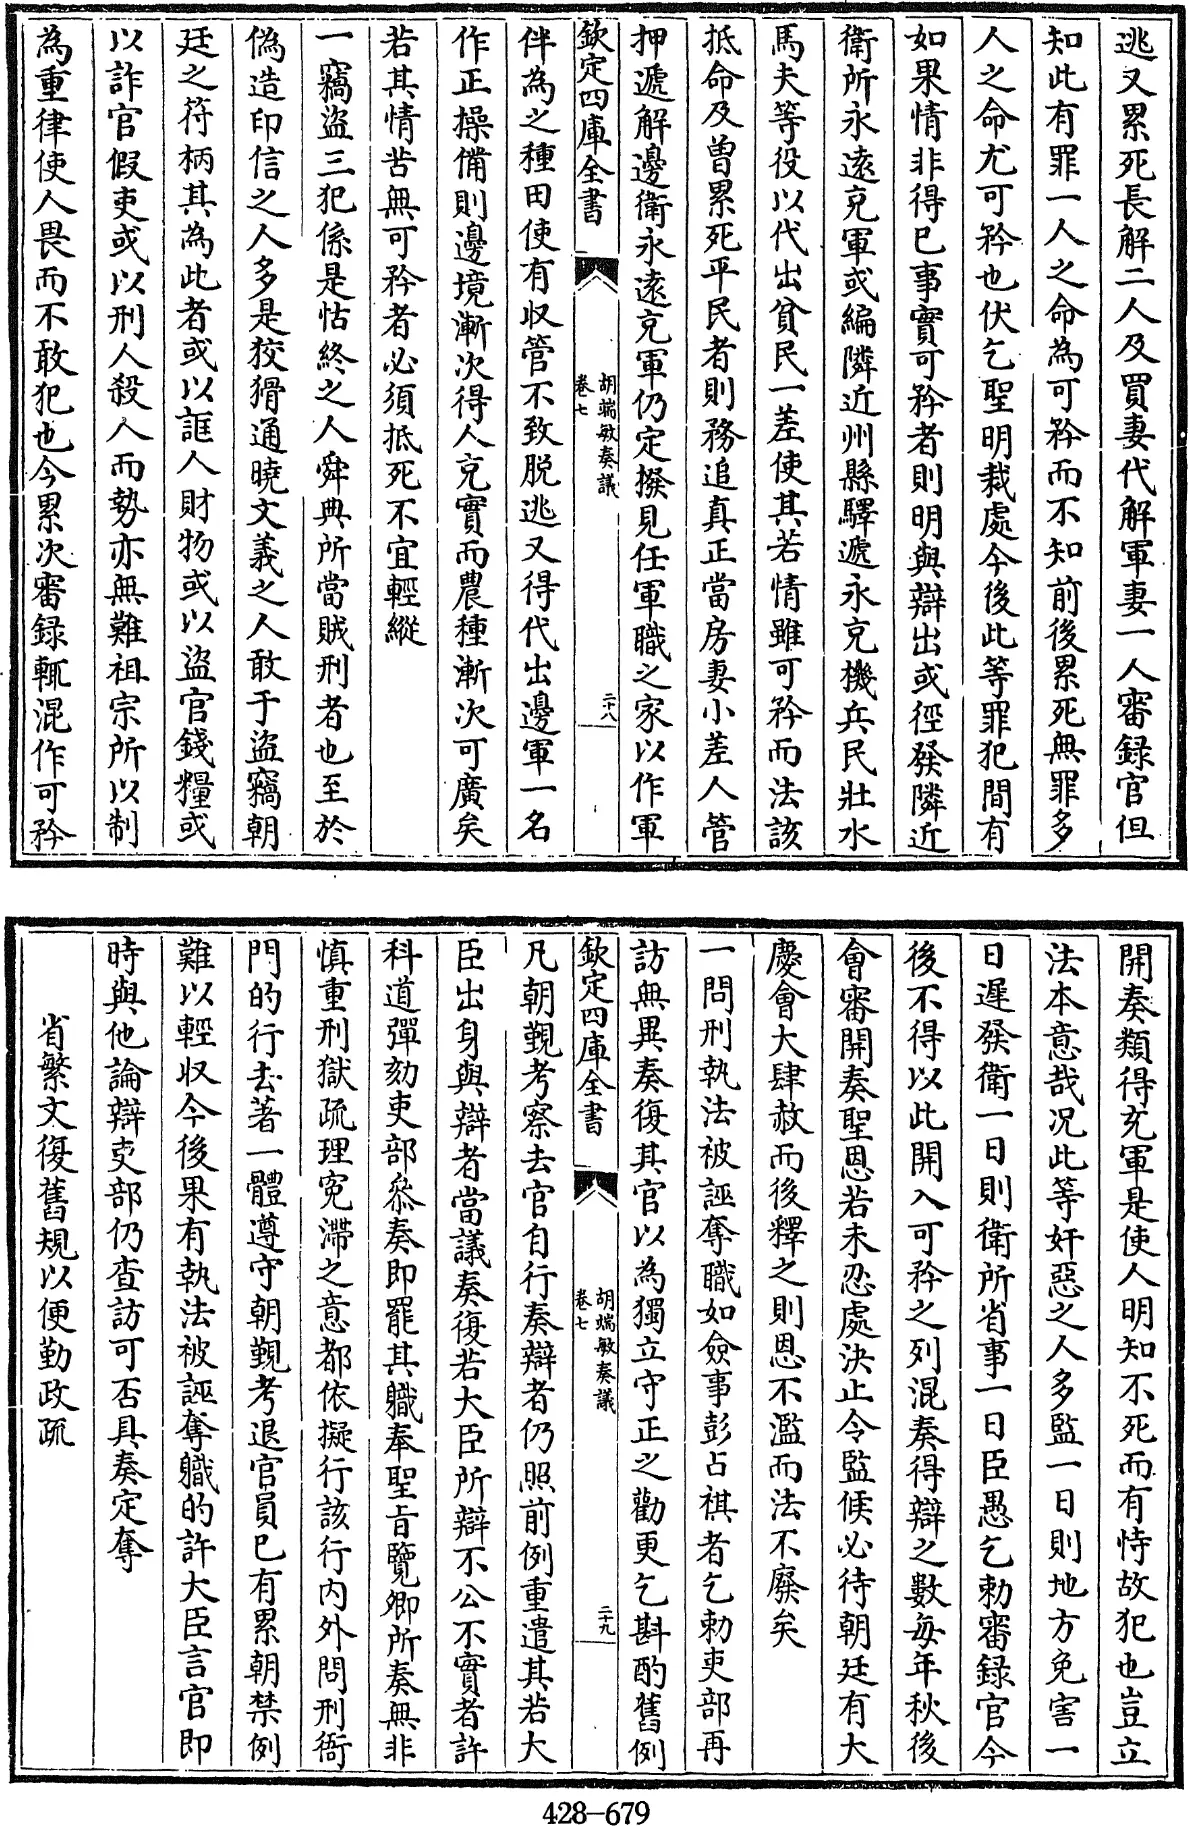 逃又累死長解二人及買妻代解軍妻一人審録官但
知此有罪一人之命為可矜而不知前後累死無罪多
人之命尤可矜也伏乞聖明裁處今後此等罪犯間有
如果情非得已事實可矜者則明與辯出或徑發隣近
衛所永遠充軍或編隣近州縣驛遞永充機兵民壯水
馬夫等役以代出貧民一差使其若情雖可矜而法該
抵命及曽累死平民者則務追真正當房妻小差人管
押遞解邊衛永遠充軍仍定撥見任軍職之家以作軍
欽定四庫全書
胡端敏奏議
卷七
二十八
伴為之種田使有收管不致脱逃又得代出邊軍一名
作正操備則邊境漸次得人充實而農種漸次可廣矣
若其情苦無可矜者必須抵死不宜輕縱
一竊盜三犯係是怙終之人舜典所當賊刑者也至於
偽造印信之人多是狡猾通曉文義之人敢于盜竊朝
廷之符柄其為此者或以誆人財物或以盜官錢糧或
以詐官假吏或以刑人殺人而勢亦無難祖宗所以制
為重律使人畏而不敢犯也今累次審録輒混作可矜
開奏類得充軍是使人明知不死而有恃故犯也豈立
法本意哉况此等奸惡之人多監一日則地方免害一
日遲發衛一日則衛所省事一日臣愚乞勅審録官今
後不得以此開入可矜之列混奏得辯之數每年秋後
會審開奏聖恩若未忍處決止令監候必待朝廷有大
慶會大肆赦而後釋之則恩不濫而法不廢矣
一問刑執法被誣奪職如僉事彭占祺者乞勅吏部再
訪無異奏復其官以為獨立守正之勸更乞斟酌舊例
欽定四庫全書
胡端敏奏議
卷七
二十九
凡朝覲考察去官自行奏辯者仍照前例重遣其若大
臣出身與辯者當議奏復若大臣所辯不公不實者許
科道彈劾吏部叅奏即罷其職奉聖旨覽卿所奏無非
慎重刑獄疏理寃滯之意都依擬行該行内外問刑衙
門的行去著一體遵守朝覲考退官員已有累朝禁例
難以輕收今後果有執法被誣奪職的許大臣言官即
時與他論辯吏部仍查訪可否具奏定奪
省繁文復舊規以便勤政疏
428-679